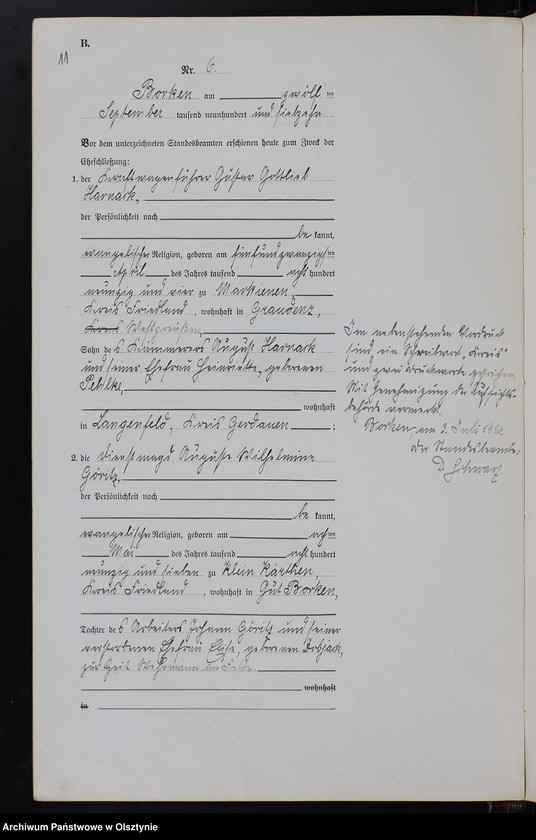 B.
11
Nr. 6.
Borken am zwölften
September tausend neunhundert und siebzehn
Vor dem unterzeichneten Standesbeamten erschienen heute zum Zweck der
Eheschließung:
1. der Kraftwagenführer Gustav Gottlieb
Harnack,
der Persönlichkeit nach
be kannt,
evangelischer Religion, geboren am fünfundzwanzigsten
April des Jahres tausend acht hundert
neunzig und vier zu Markienen,
Kreis Friedland, wohnhaft in Graudenz,
Kreis Westpreußen,
Sohn des Kämmerers August Harnack
und seiner Ehefrau Henriette, geborenen
Pehlke,
wohnhaft
in Langenfeld, Kreis Gerdauen;
2. die Dienstmagd Auguste Wilhelmine
Göritz,
der Persönlichkeit nach
be kannt,
evangelischer Religion, geboren am achten
Mai des Jahres tausend acht hundert
neunzig und sieben zu Klein Kärthen,
Kreis Friedland, wohnhaft in Gut Borken,
Tochter des Arbeiters Johann Göritz und seiner
verstorbenen Ehefrau Elise, geborenen
zur Zeit Wehrmann im Felde.
wohnhaft
in
Im nebenstehenden Vordruck
sind ein Schreibwort „Kreis"
und zwei Druckworte gestrichen
Mit Genehmigung der Aufsichts-
behörde vermerkt.
Borken, am 3. Juli
Der Standesbeamte:
D. Schwarz
Archiwum Państwowe w Olsztynie